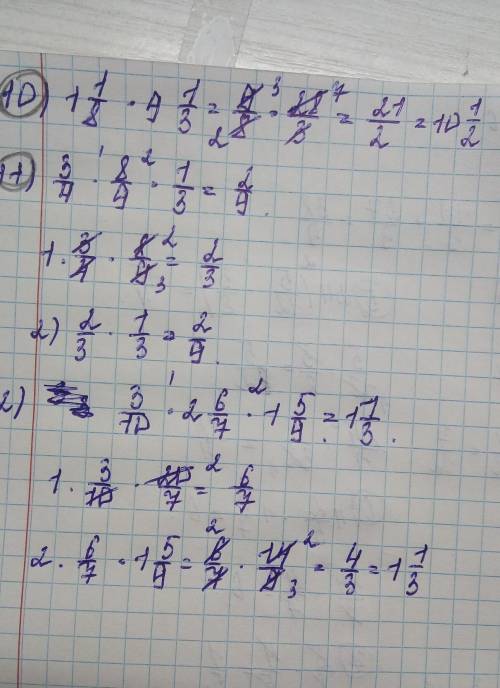 10) 1 1/8 · 9 1/3 = 9/8 · 28/3 = 21/2 = 10 1/2
11) 3/4 ·¹ 8/9 ·² 1/3 = 2/9.
1. 3/4 · 8/9 = 2/3
2) 2/3 · 1/3 = 2/9.
2) 3/10 ·¹ 2 6/7 ·² 1 5/9 = 1 1/3.
1. 3/10 · 20/7 = 6/7
2. 6/7 · 1 5/9 = 6/7 · 14/9 = 4/3 = 1 1/3